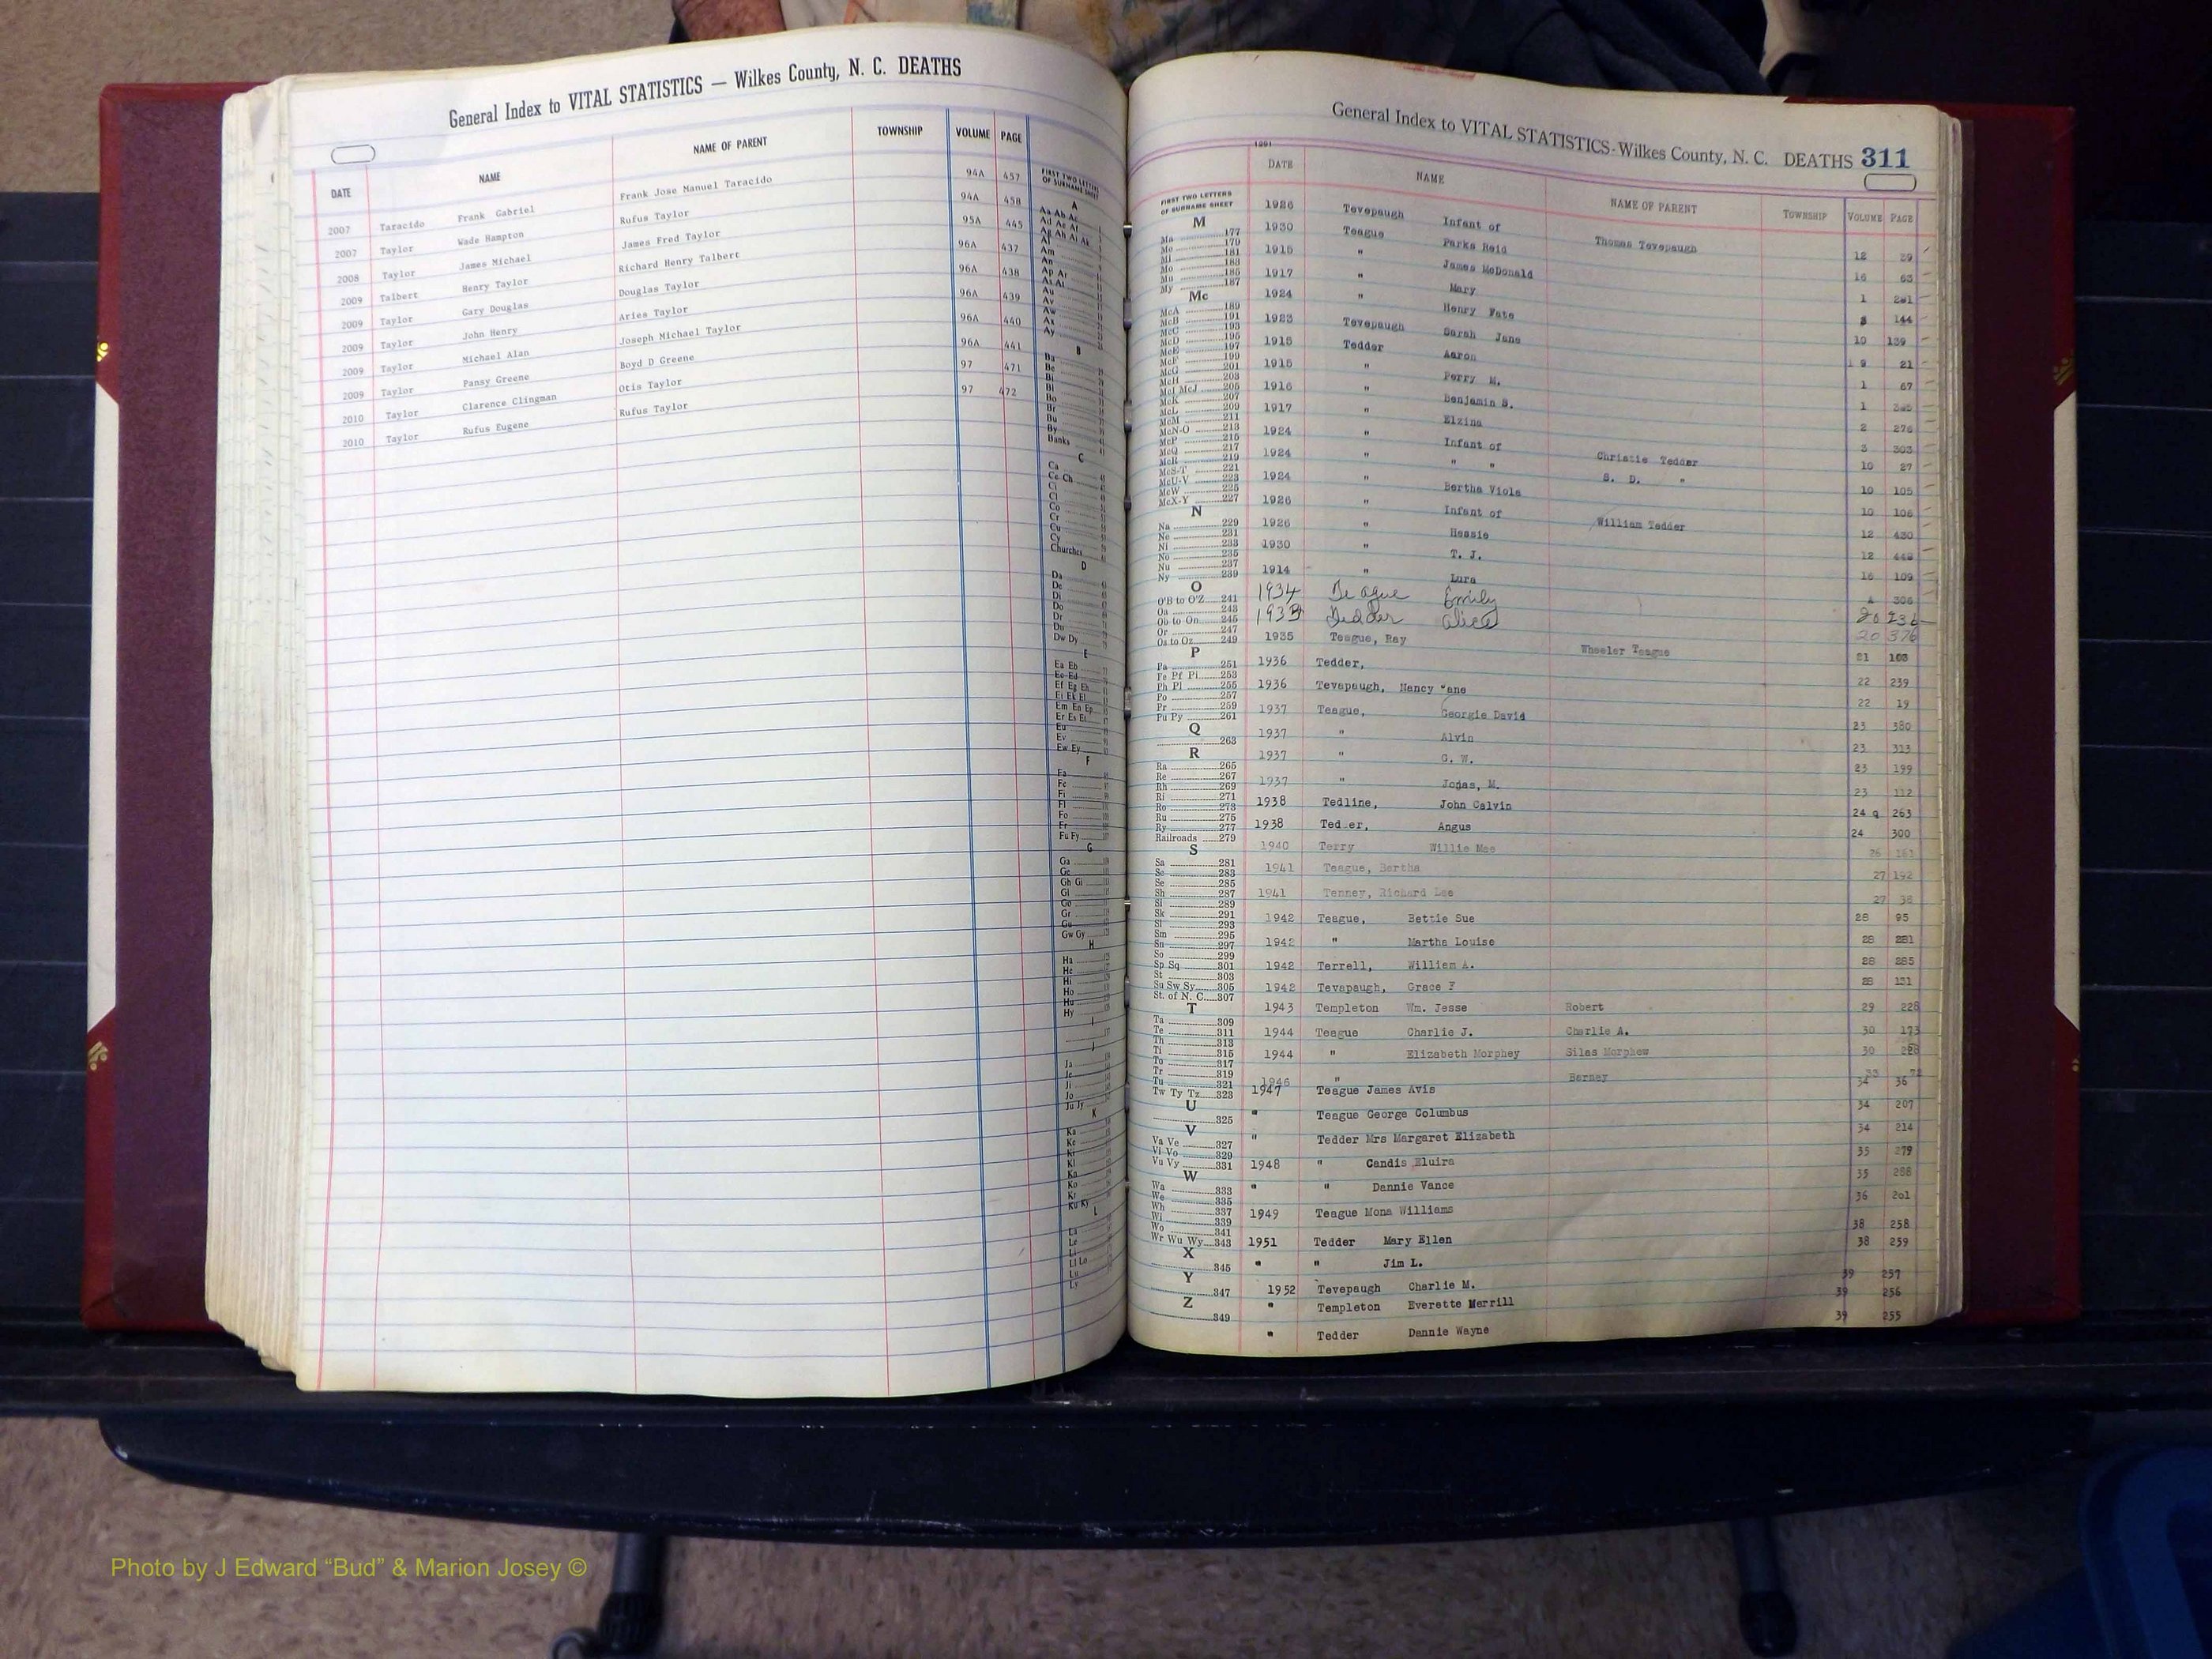 General Index to VITAL STATISTICS — Wilkes County, N. C. DEATHS
DATE NAME NAME OF PARENT TOWNSHIP VOLUME PAGE
2007 Taracido Frank Gabriel Frank Jose Manuel Taracido 94A 457
2007 Taylor Wade Hampton Rufus Taylor 94A 458
2008 Taylor James Michael James Fred Taylor 95A 445
2009 Talbert Henry Taylor Richard Henry Talbert 96A 437
2009 Taylor Gary Douglas Douglas Taylor 96A 438
2009 Taylor John Henry Aries Taylor 96A 439
2009 Taylor Michael Alan Joseph Michael Taylor 96A 440
2009 Taylor Pansy Greene Boyd D Greene 96A 441
2010 Taylor Clarence Clingman Otis Taylor 97 471
2010 Taylor Rufus Eugene Rufus Taylor 97 472
FIRST TWO LETTERS
OF SURNAME SHEET
A
Aa Ab Ac
Ad Ae Af
Ag Ah Ai Ak
Al
Am
An
Ap Ar
As At
Au
Av
Aw
Ax
Ay
B
Ba
Be
Bi
Bl
Bo
Br
Bu
By
Banks
C
Ca
Ce Ch
Ci
Cl
Co
Cr
Cu
Cy
Churches
D
Da
De
Di
Do
Dr
Du
Dw Dy
E
Ea Eb
Ec Ed
Ef Eg Eh
Ei Ek El
Em En Ep
Er Es Et
Eu
Ev
Ew Ey
F
Fa
Fe
Fi
Fl
Fo
Fr
Fu Fy
G
Ga
Ge
Gh Gi
Gl
Go
Gr
Gu
Gw Gy
H
Ha
He
Hi
Ho
Hu
Hy
I
J
Ja
Je
Ji
Jo
Ju Jy
K
Ka
Ke
Ki
Kl
Kn
Ko
Kr
Ku Ky
L
La
Le
Li
Ll Lo
Lu
Ly
General Index to VITAL STATISTICS-Wilkes County, N. C. DEATHS 311
DATE NAME NAME OF PARENT TOWNSHIP VOLUME PAGE
FIRST TWO LETTERS
OF SURNAME SHEET
M
Ma 177
Me 179
Mi 181
Mo 183
Mu 185
My 187
Mc
McA 189
McB 191
McC 193
McD 195
McE 197
McF 199
McG 201
McH 203
McI McJ 205
McK 207
McL 209
McM 211
McN-O 213
McP 215
McQ 217
McR 219
McS-T 221
McU-V 223
McW 225
McX-Y 227
N
Na 229
Ne 231
Ni 233
No 235
Nu 237
Ny 239
O
O'B to O'Z 241
Oa 243
Ob to On 245
Or 247
Os to Oz 249
P
Pa 251
Pe Pf Pi 253
Ph Pl 255
Po 257
Pr 259
Pu Py 261
Q
263
R
Ra 265
Re 267
Rh 269
Ri 271
Ro 273
Ru 275
Ry 277
Railroads 279
S
Sa 281
Sc 283
Se 285
Sh 287
Si 289
Sk 291
Sl 293
Sm 295
Sn 297
So 299
Sp Sq 301
St 303
Su Sw Sy 305
St. of N. C. 307
T
Ta 309
Te 311
Th 313
Ti 315
To 317
Tr 319
Tu 321
Tw Ty Tz 323
U
325
V
Va Ve 327
Vi Vo 329
Vu Vy 331
W
Wa 333
We 335
Wh 337
Wi 339
Wo 341
Wr Wu Wy 343
X
345
Y
347
Z
349
1926 Tevepaugh Infant of Thomas Tevepaugh 12 39
1930 Teague Parks Reid 16 63
1915 " James McDonald 1
1917 " Mary 144
1924 " Henry Fate 10 139
1923 Tevepaugh Sarah Jane 9 21
1915 Tedder Aaron 1 67
1915 " Perry M. 1
1916 " Benjamin S. 2 276
1917 " Elzina 3 303
1924 " Infant of Christie Tedder 10 27
1924 " " " S. D. " 10 105
1924 " Bertha Viola 10 106
1926 " Infant of William Tedder 12 430
1926 " Hessie 12 448
1930 " T. J. 16 109
1914 " Lura 306
1934 Teague Emily 20 236
1933 Tedder Alice 20 376
1935 Teague, Ray Wheeler Teague 21 103
1936 Tedder, 22 239
1936 Tevapaugh, Nancy Jane 22 19
1937 Teague, Georgie David 23 380
1937 " Alvin 23 313
1937 " G. W. 23 199
1937 " Jonas, M. 23 112
1938 Tedline, John Calvin 24 263
1938 Ted er, Angus 24 300
1940 Terry Willie Mae 26 161
1941 Teague, Bertha 27 192
1941 Tenney, Richard Lee 27 38
1942 Teague, Bettie Sue 28 95
1942 " Martha Louise 28 281
1942 Terrell, William A. 28 285
1942 Tevapaugh, Grace F 28 131
1943 Templeton Wm. Jesse Robert 29 228
1944 Teague Charlie J. Charlie A. 30 173
1944 " Elizabeth Morphey Silas Morphew 30
1946 " Berney 33
1947 Teague James Avis 34 36
" Teague George Columbus 34 207
" Tedder Mrs Margaret Elizabeth 34 214
1948 " Candis Eluira 35 279
" " Dannie Vance 35 288
1949 Teague Mona Williams 36 201
1951 Tedder Mary Ellen 38 258
" " Jim L. 38 259
1952 Tevepaugh Charlie M. 39 257
" Templeton Everette Merrill 39 256
" Tedder Dannie Wayne 39 255
Photo by J Edward “Bud” & Marion Josey ©